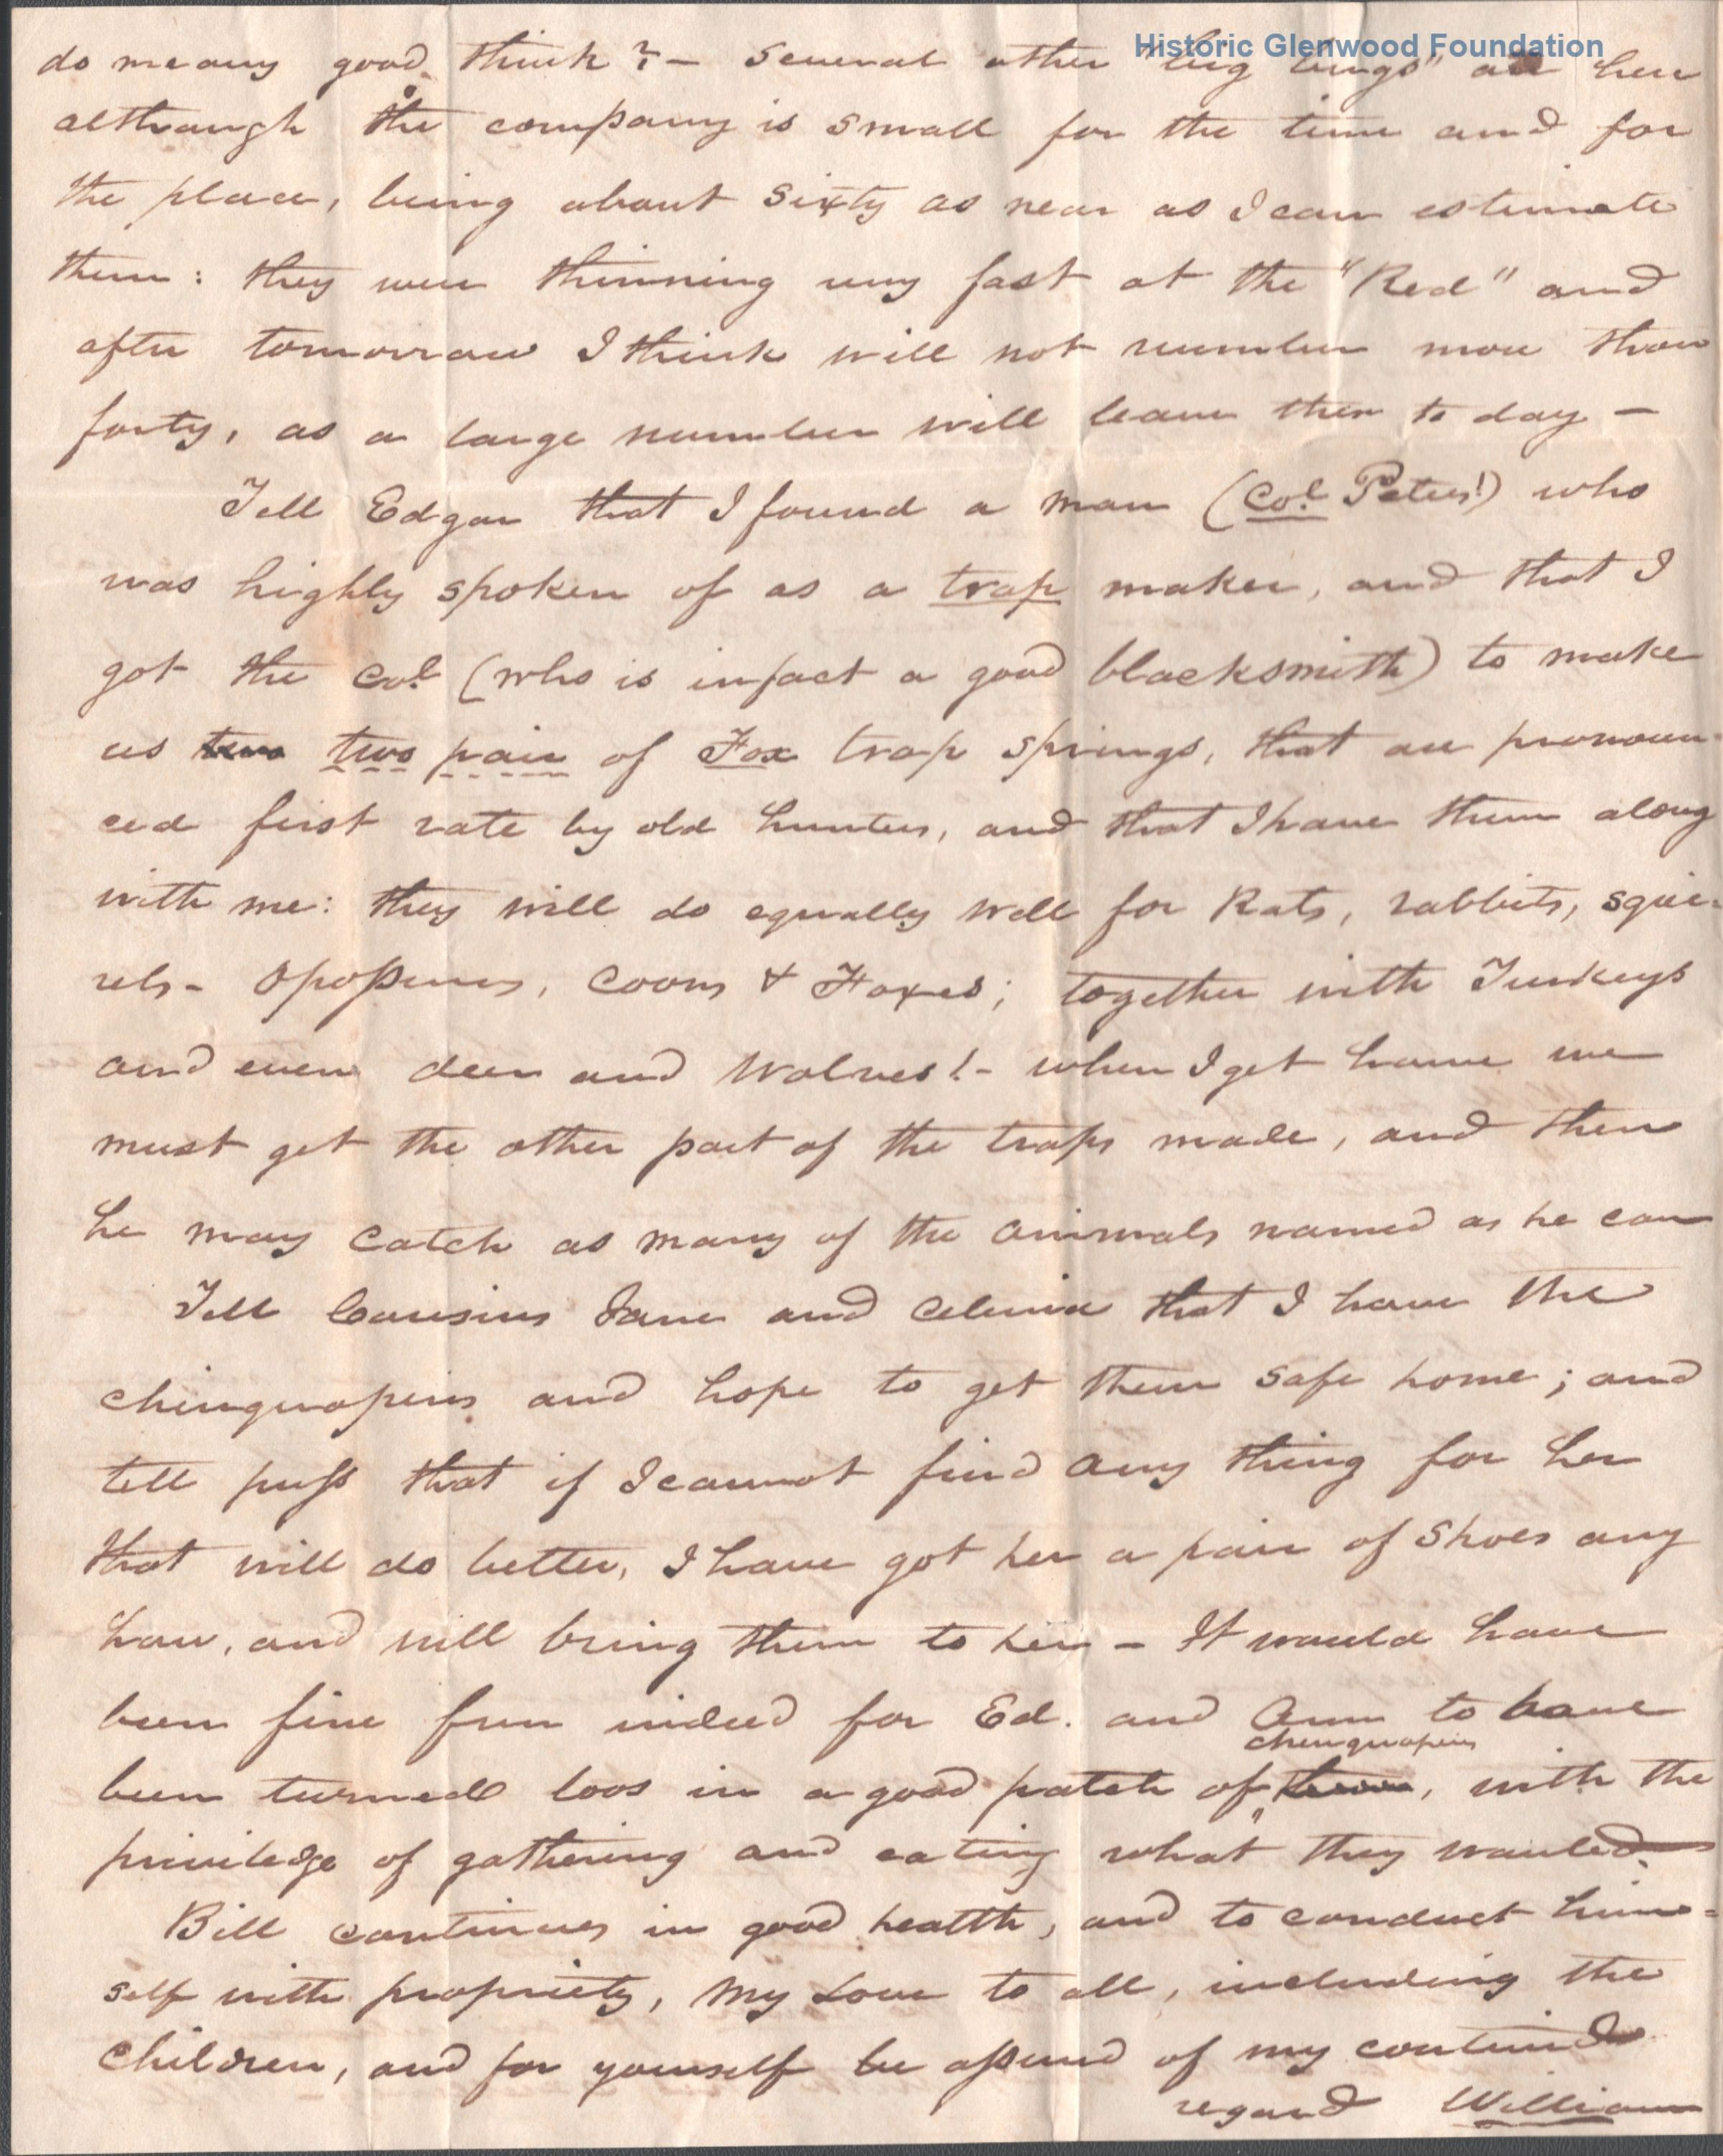 Historic Glenwood Foundation
do me any good think? – several other "big bugs" are here
although the company is small for the time and for
the place, being about sixty as near as I can estimate
them: they were thinning very fast at the "Red" and
after tomorrow I think will not number more than
forty, as a large number will leave then to day –
Tell Edgar that I found a man (Col. Peters!) who
was highly spoken of as a trap maker, and that I
got the Col. (who is infact a good blacksmith) to make
us two two pair of Fox trap springs, that are pronoun-
ced first rate by old hunters, and that I have them along
with me: they will do equally well for Rats, rabbits, squir-
rels - Opossums, Coons & Foxes; together with Turkeys
and even deer and Wolves! - when I get home we
must get the other part of the traps made, and then
he may catch as many of the animals named as he can
Tell Cousins Jane and Celenia that I have the
chinquapins and hope to get them safe home; and
tell puss that if I cannot find any thing for her
that will do better, I have got her a pair of shoes any
how, and will bring them to her – It would have
been fine fun indeed for Ed. and Ann to have
chinquapins
been turned loos in a good patch of them, with the
priviledge of gathering and eating what they wanted.
Bill continues in good health, and to conduct him-
self with propriety, My Love to all, including the
children, and for yourself be assured of my continued
regard William